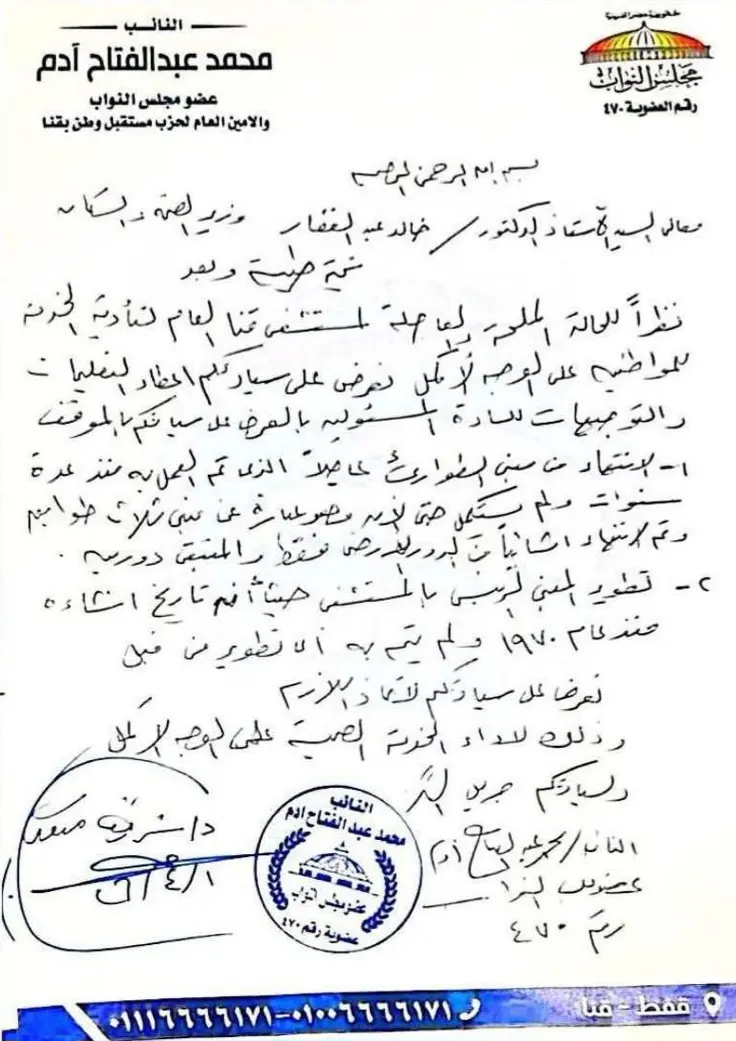 النائب
محمد عبدالفتاح آدم
عضو مجلس النواب
والامين العام لحزب مستقبل وطن بقنا
جمهورية مصر العربية
مجلس النواب
رقم العضوية ٤٧٠
بسم الله الرحمن الرحيم
معالى السيد الأستاذ الدكتور / خالد عبد الغفار وزير الصحة والسكان
تحية طيبة وبعد
نظراً للحالة الملحة والعاجلة لمستشفى قنا العام لتأدية الخدمة
للمواطنين على الوجه الأكمل نعرض على سيادتكم اعطاء التعليمات
والتوجيهات للسادة المسئولين بالعرض على سيادتكم بالموقف
١- الانتهاء من مبنى الطوارئ كاملاً الذى تم العمل به منذ عدة
سنوات ولم يستكمل حتى الآن وهو عبارة عن مبنى ثلاث طوابق
وتم الانتهاء انشائياً من الدور الأرضى فقط والمتبقى دورين .
٢- تطوير المبنى الرئيسى بالمستشفى حيث أنه تاريخ انشاءه
منذ عام ١٩٧٠ ولم يتم به أى تطوير من قبل
نعرض على سيادتكم لاتخاذ اللازم
وذلك لاداء الخدمة الصحية على الوجه الأكمل
ولسيادتكم جزيل الشكر
النائب / محمد عبد الفتاح آدم
عضو مجلس النواب
رقم ٤٧٠
النائب
محمد عبدالفتاح آدم
عضو مجلس النواب
عضوية رقم ٤٧٠
قفط - قنا
٠١١١٦٦٦٦١٧١-٠١٠٠٦٦٦٦١٧١